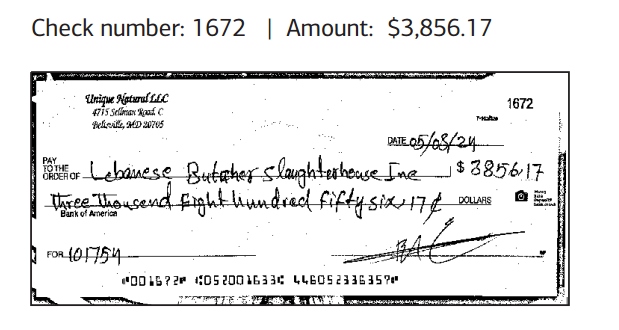 Check number: 1672 | Amount: $3,856.17
Unique Natural LLC
1672
4715 Sellman Road, C
Beltsville, MD 20705
DATE 05/03/24
PAY TO THE ORDER OF Lebanese Butcher Slaughterhouse Inc $ 3856.17
Three Thousend Eight hundred fifty six, 17 ¢ DOLLARS
Bank of America
FOR 101754
⑈001672⑈ ⑆052001633⑆ 446052336357⑈